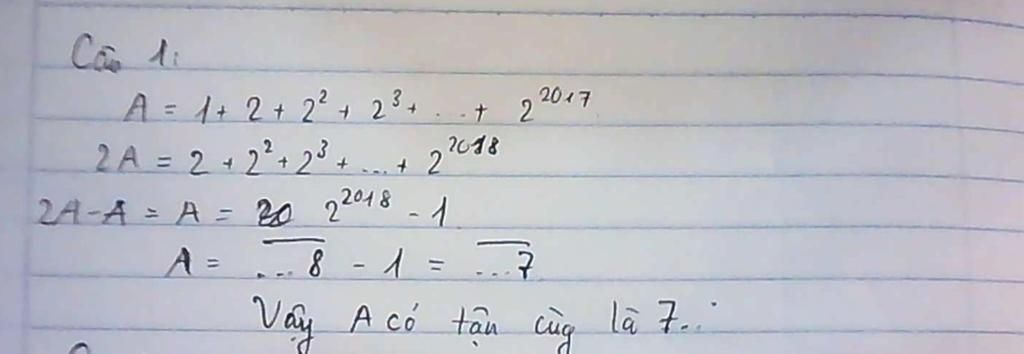 Câu 1:
A = 1 + 2 + 2² + 2³ + ... + 2²⁰¹⁷
2A = 2 + 2² + 2³ + ... + 2²⁰¹⁸
2A - A = A = 2²⁰¹⁸ - 1
A = ...8 - 1 = ...7
Vậy A có tận cùg là 7..